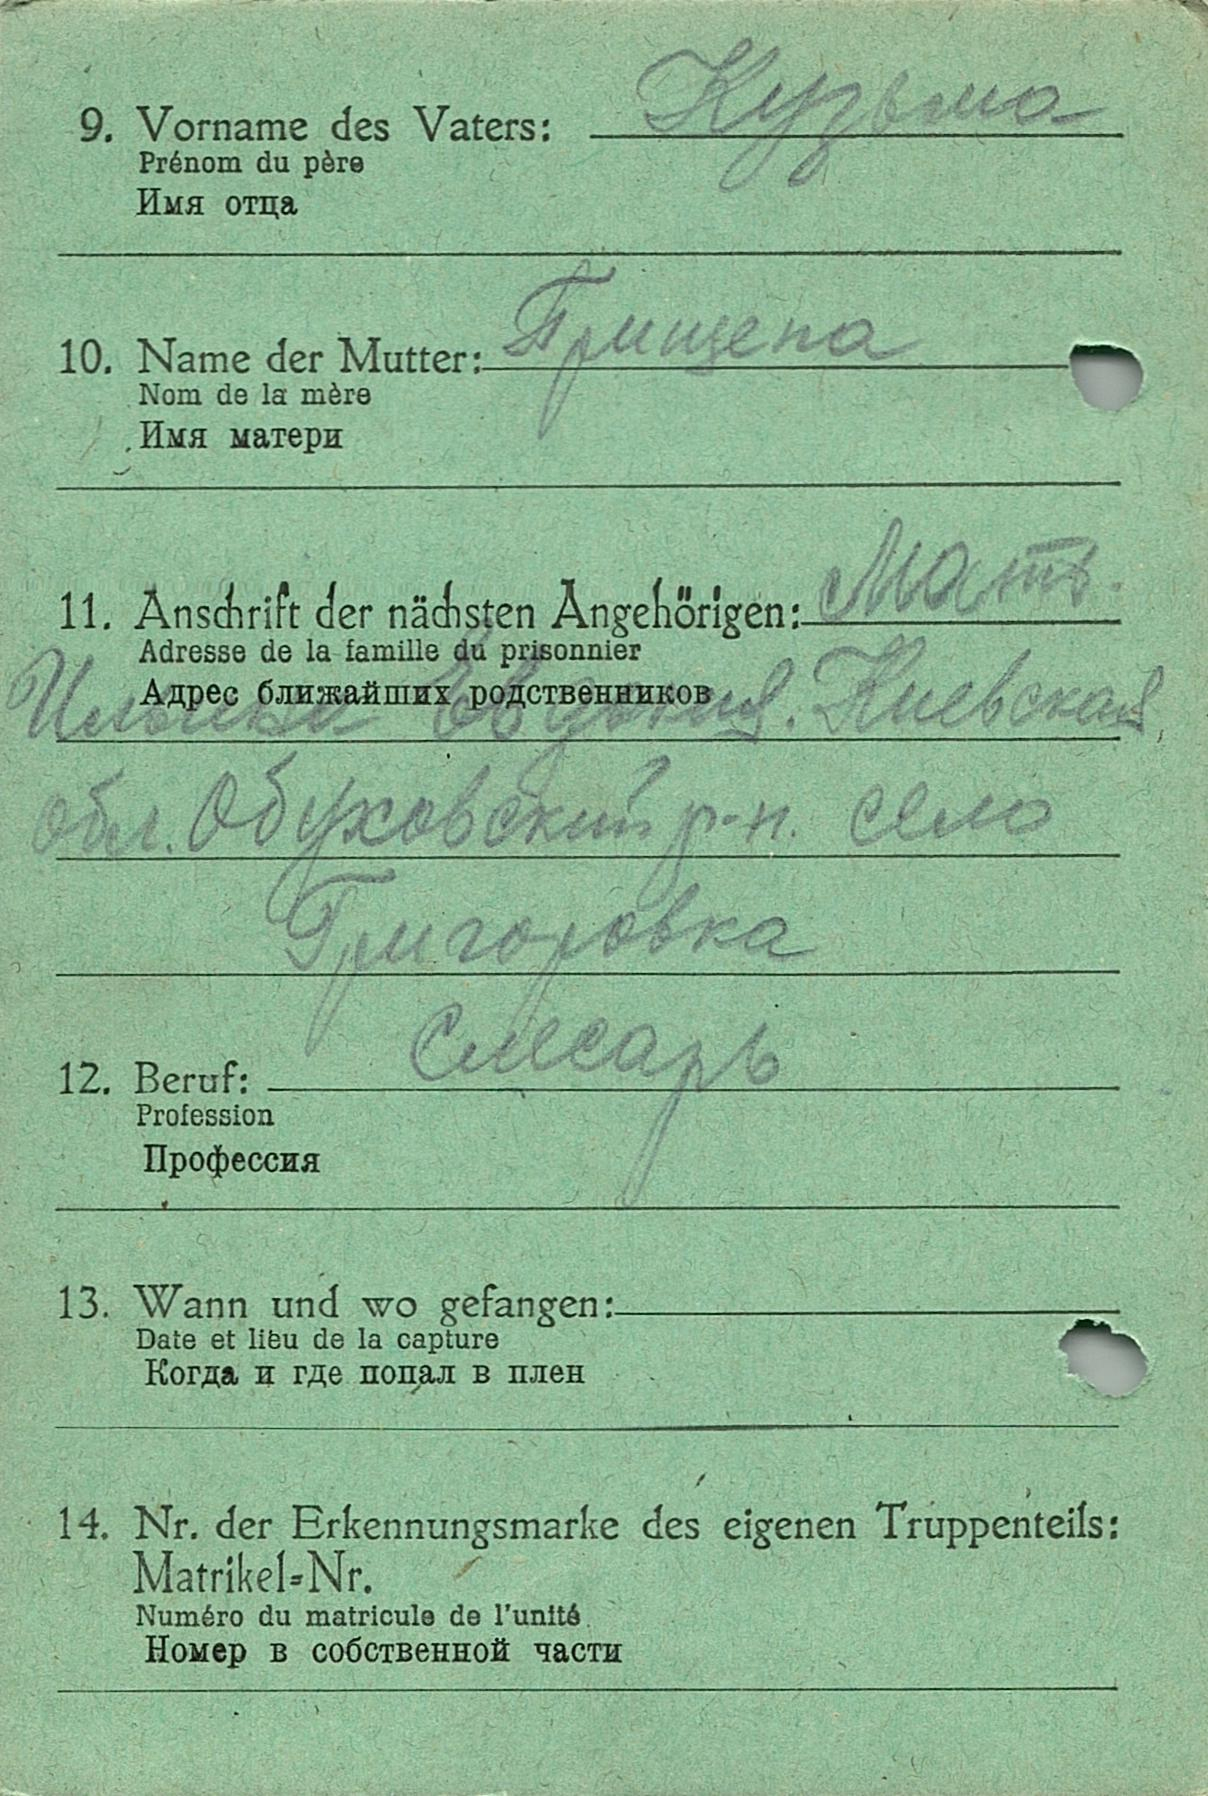 9. Vorname des Vaters: Кузьма
Prénom du père
Имя отца
10. Name der Mutter: Грищепа
Nom de la mère
Имя матери
11. Anschrift der nächsten Angehörigen: Мать.
Adresse de la famille du prisonnier
Адрес ближайших родственников
Евдокия. Киевская
обл. Обуховский р-н. село
Григоровка
12. Beruf: Слесарь
Profession
Профессия
13. Wann und wo gefangen:
Date et lieu de la capture
Когда и где попал в плен
14. Nr. der Erkennungsmarke des eigenen Truppenteils:
Matrikel=Nr.
Numéro du matricule de l'unité
Номер в собственной части